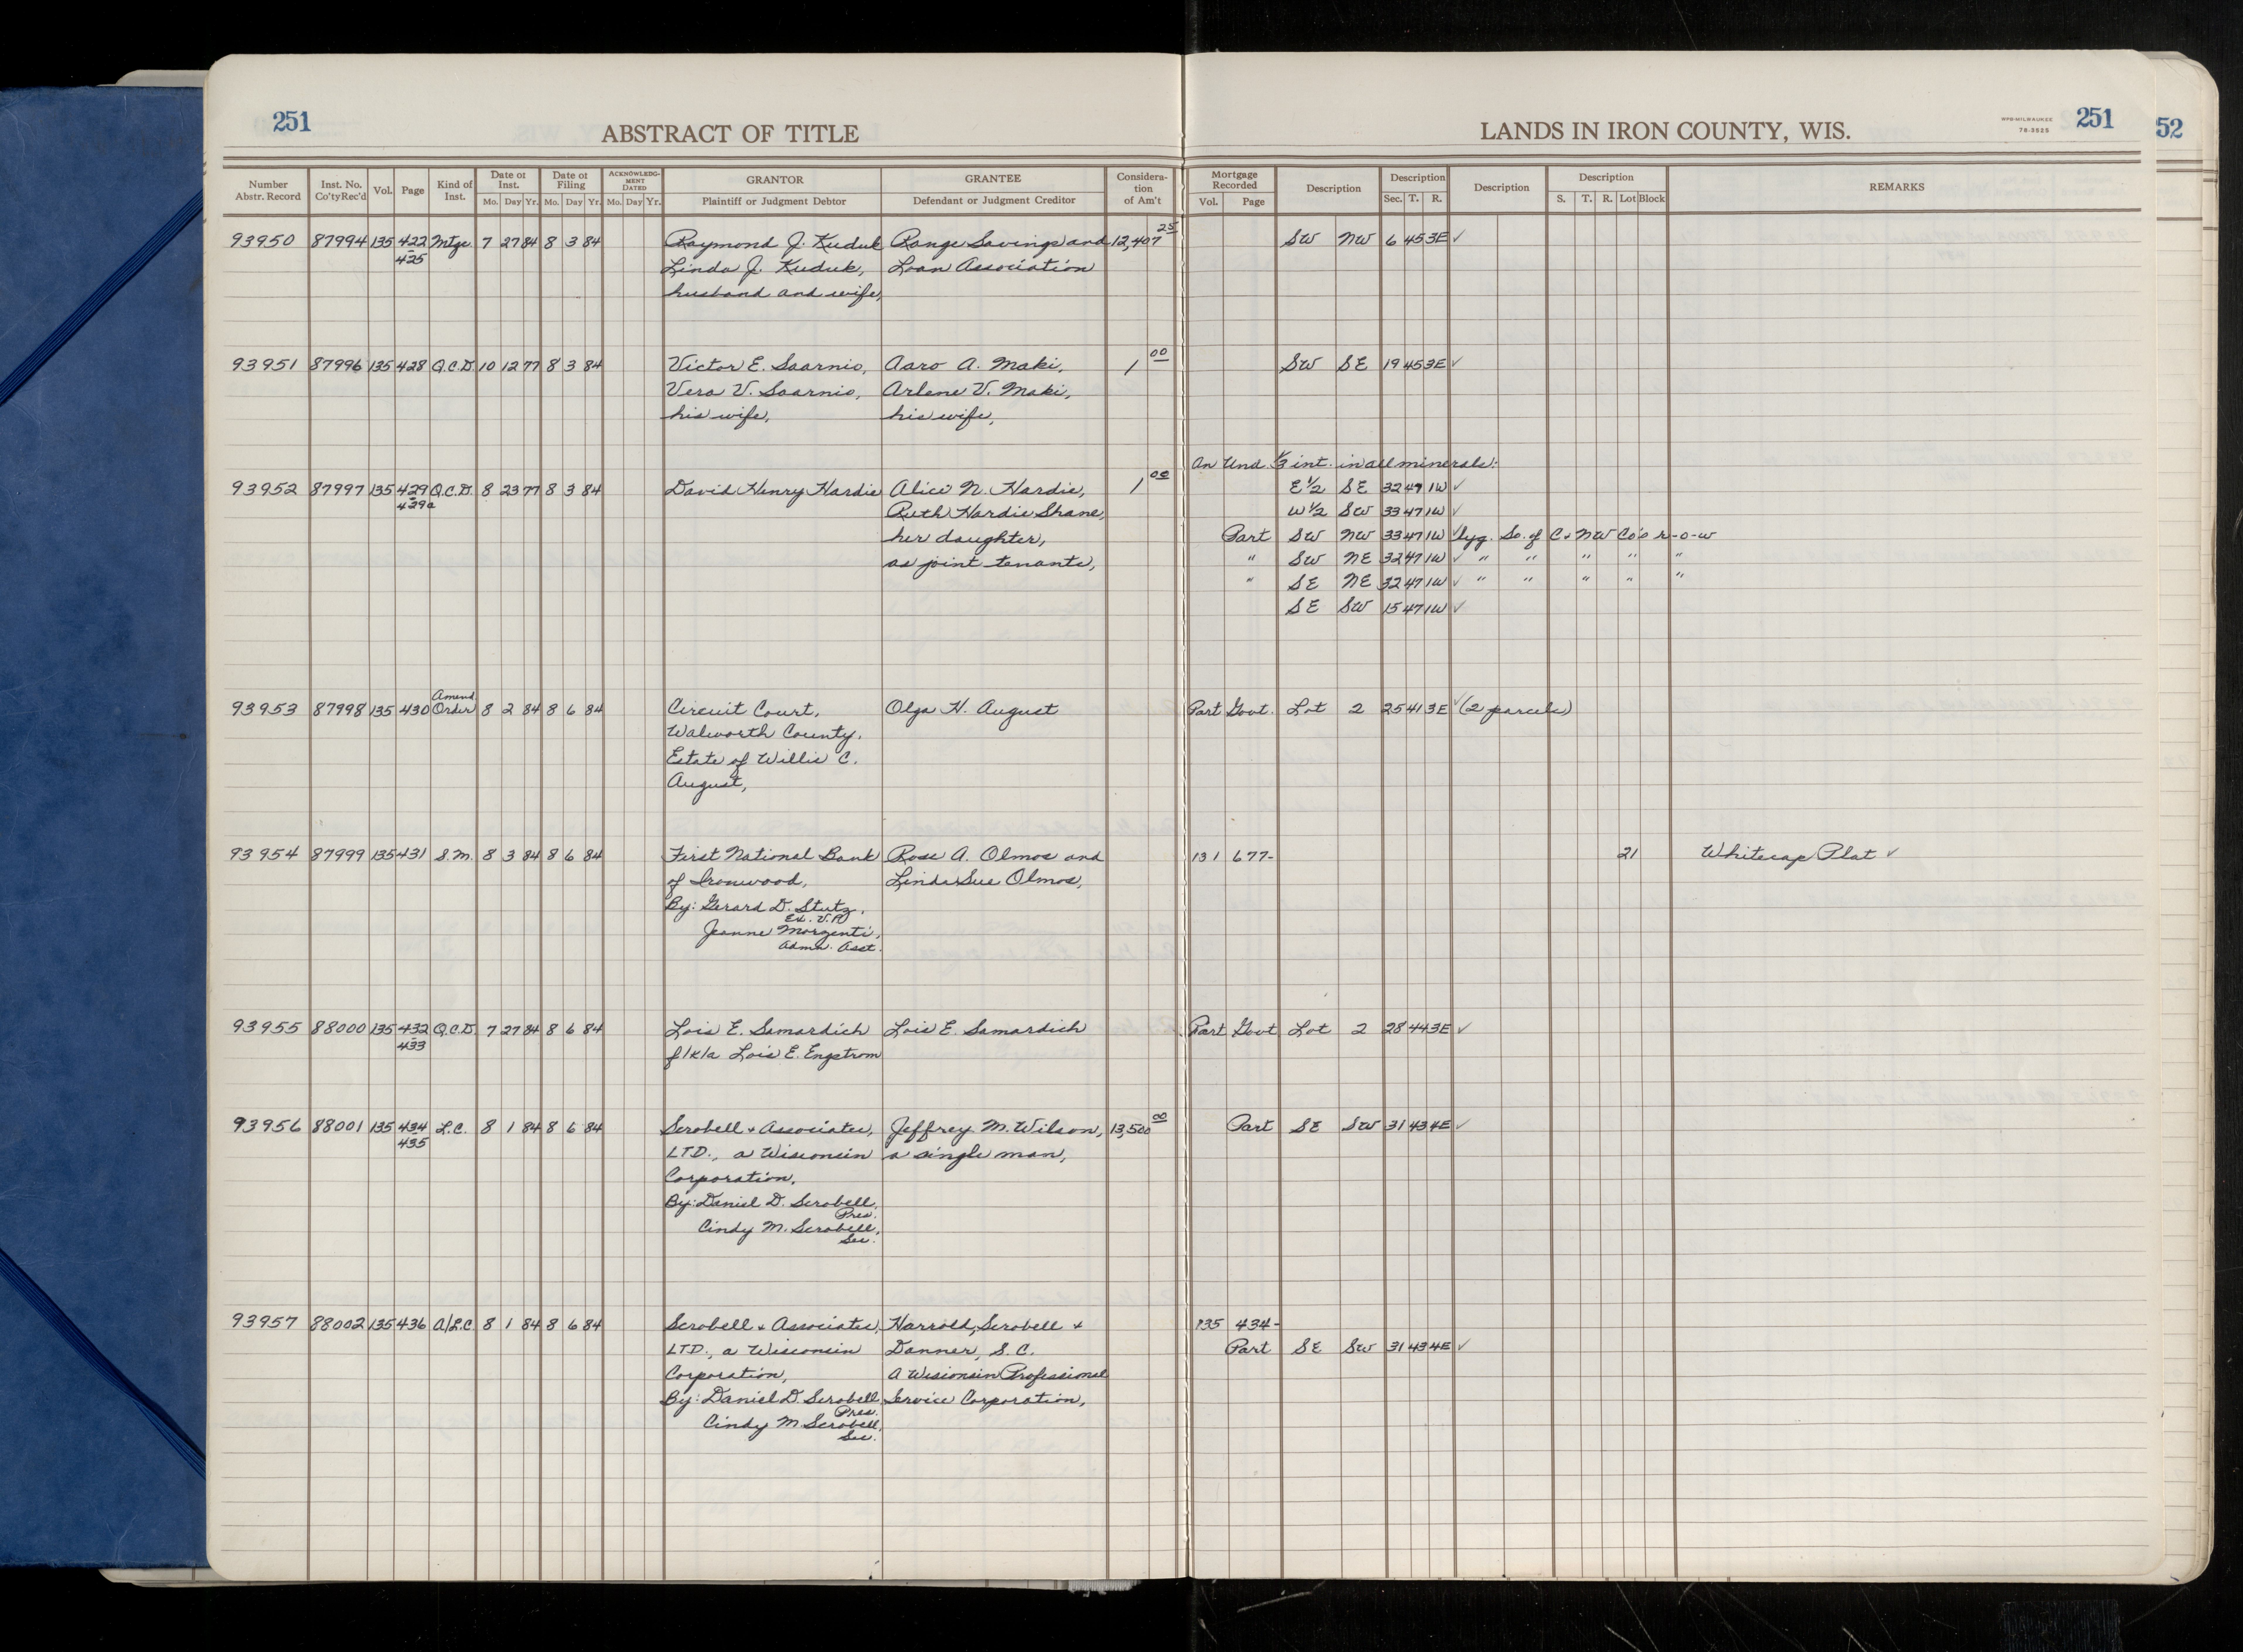 251
ABSTRACT OF TITLE
LANDS IN IRON COUNTY, WIS.
WPB-MILWAUKEE
78-3525
251
52
Number Abstr. Record Inst. No. Co'tyRec'd Vol. Page Kind of Inst. Date of Inst. Mo. Day Yr. Date of Filing Mo. Day Yr. ACKNOWLEDGMENT DATED Mo. Day Yr. GRANTOR Plaintiff or Judgment Debtor GRANTEE Defendant or Judgment Creditor Considera-tion of Am't Mortgage Recorded Vol. Page Description Description Sec. T. R. Description Description S. T. R. Lot Block REMARKS
93950 87994 135 422 Mtge. 7 27 84 8 3 84 Raymond J. Kuduk Range Savings and 12,407 25 SW NW 6 45 3E ✓
425 Linda J. Kuduk, Loan Association
husband and wife,
93951 87996 135 428 Q.C.D. 10 12 77 8 3 84 Victor E. Saarnio, Aaro A. Maki, 1 00 SW SE 19 45 3E ✓
Vera V. Saarnio, Arlene V. Maki,
his wife, his wife,
An Und. 1/3 int. in all minerals:
93952 87997 135 429 Q.C.D. 8 23 77 8 3 84 David Henry Hardie Alice N. Hardie, 1 00 E 1/2 SE 32 47 1W ✓
429a Ruth Hardie Shane, W 1/2 SW 33 47 1W ✓
her daughter, Part SW NW 33 47 1W ✓ lyg. So. of C & NW Co's r-o-w
as joint tenants, " SW NE 32 47 1W ✓ " " " " "
" SE NE 32 47 1W ✓ " " " " "
SE SW 15 47 1W ✓
Amend.
93953 87998 135 430 Order 8 2 84 8 6 84 Circuit Court, Olga H. August Part Govt. Lot 2 25 41 3E ✓ (2 parcels)
Walworth County,
Estate of Willis C.
August,
93954 87999 135 431 S.M. 8 3 84 8 6 84 First National Bank Rose A. Olmos and 131 677- 21 Whitecap Plat ✓
of Ironwood, Linda Sue Olmos,
By: Gerard D. Stutz,
Ex. V.P.
Jeanne Morzenti,
Admn. Asst.
93955 88000 135 432 Q.C.D. 7 27 84 8 6 84 Lois E. Samardich Lois E. Samardich Part Govt Lot 2 28 44 3E ✓
433 f/k/a Lois E. Engstrom
93956 88001 135 434 L.C. 8 1 84 8 6 84 Scrobell & Associates, Jeffrey M. Wilson, 13,500 00 Part SE SW 31 43 4E ✓
435 LTD., a Wisconsin a single man,
Corporation,
By: Daniel D. Scrobell,
Pres.
Cindy M. Scrobell,
Sec.
93957 88002 135 436 A/L.C. 8 1 84 8 6 84 Scrobell & Associates, Harrold, Scrobell & 135 434-
LTD., a Wisconsin Danner, S.C. Part SE SW 31 43 4E ✓
Corporation, A Wisionsin Professional
By: Daniel D. Scrobell, Service Corporation,
Pres.
Cindy M. Scrobell,
Sec.